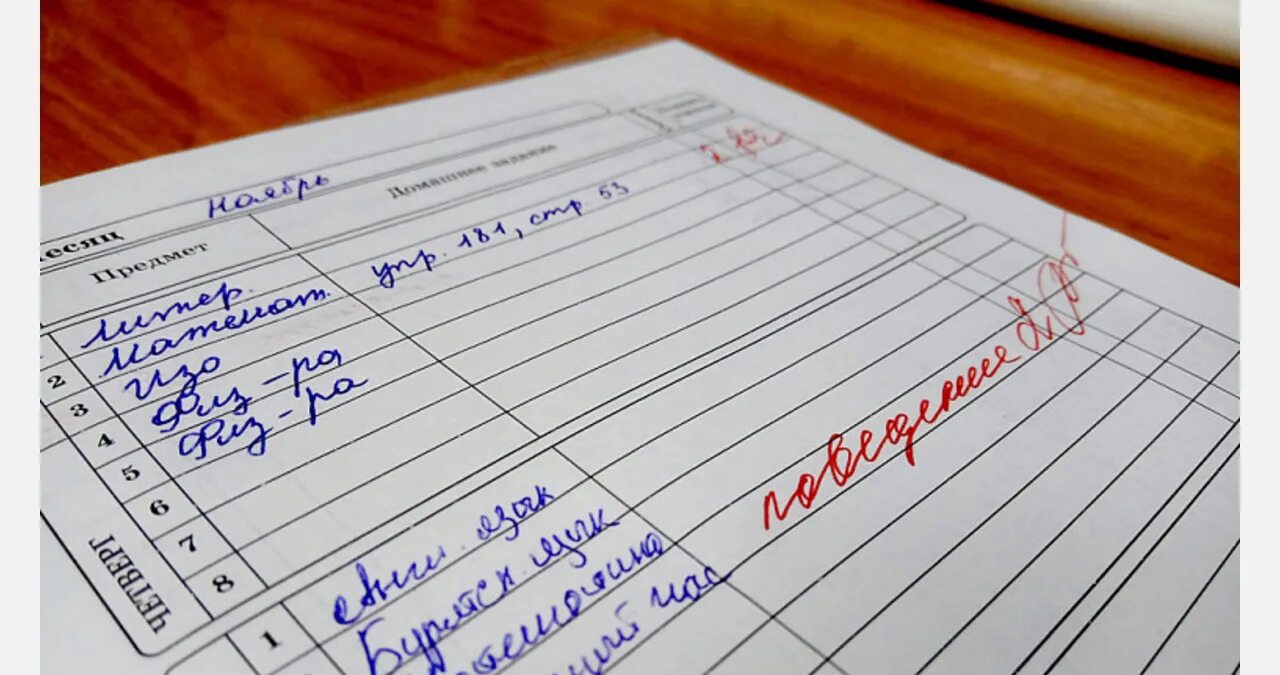 месяц ноябрь
Предмет Домашнее задание
Литер.
2 Математ. упр. 181, стр 53
3 Изо
4 Физ-ра
5 Физ-ра
6
7
8
ЧЕТВЕРГ
1 Англ. язык
Бурятск. язык
поведение 2